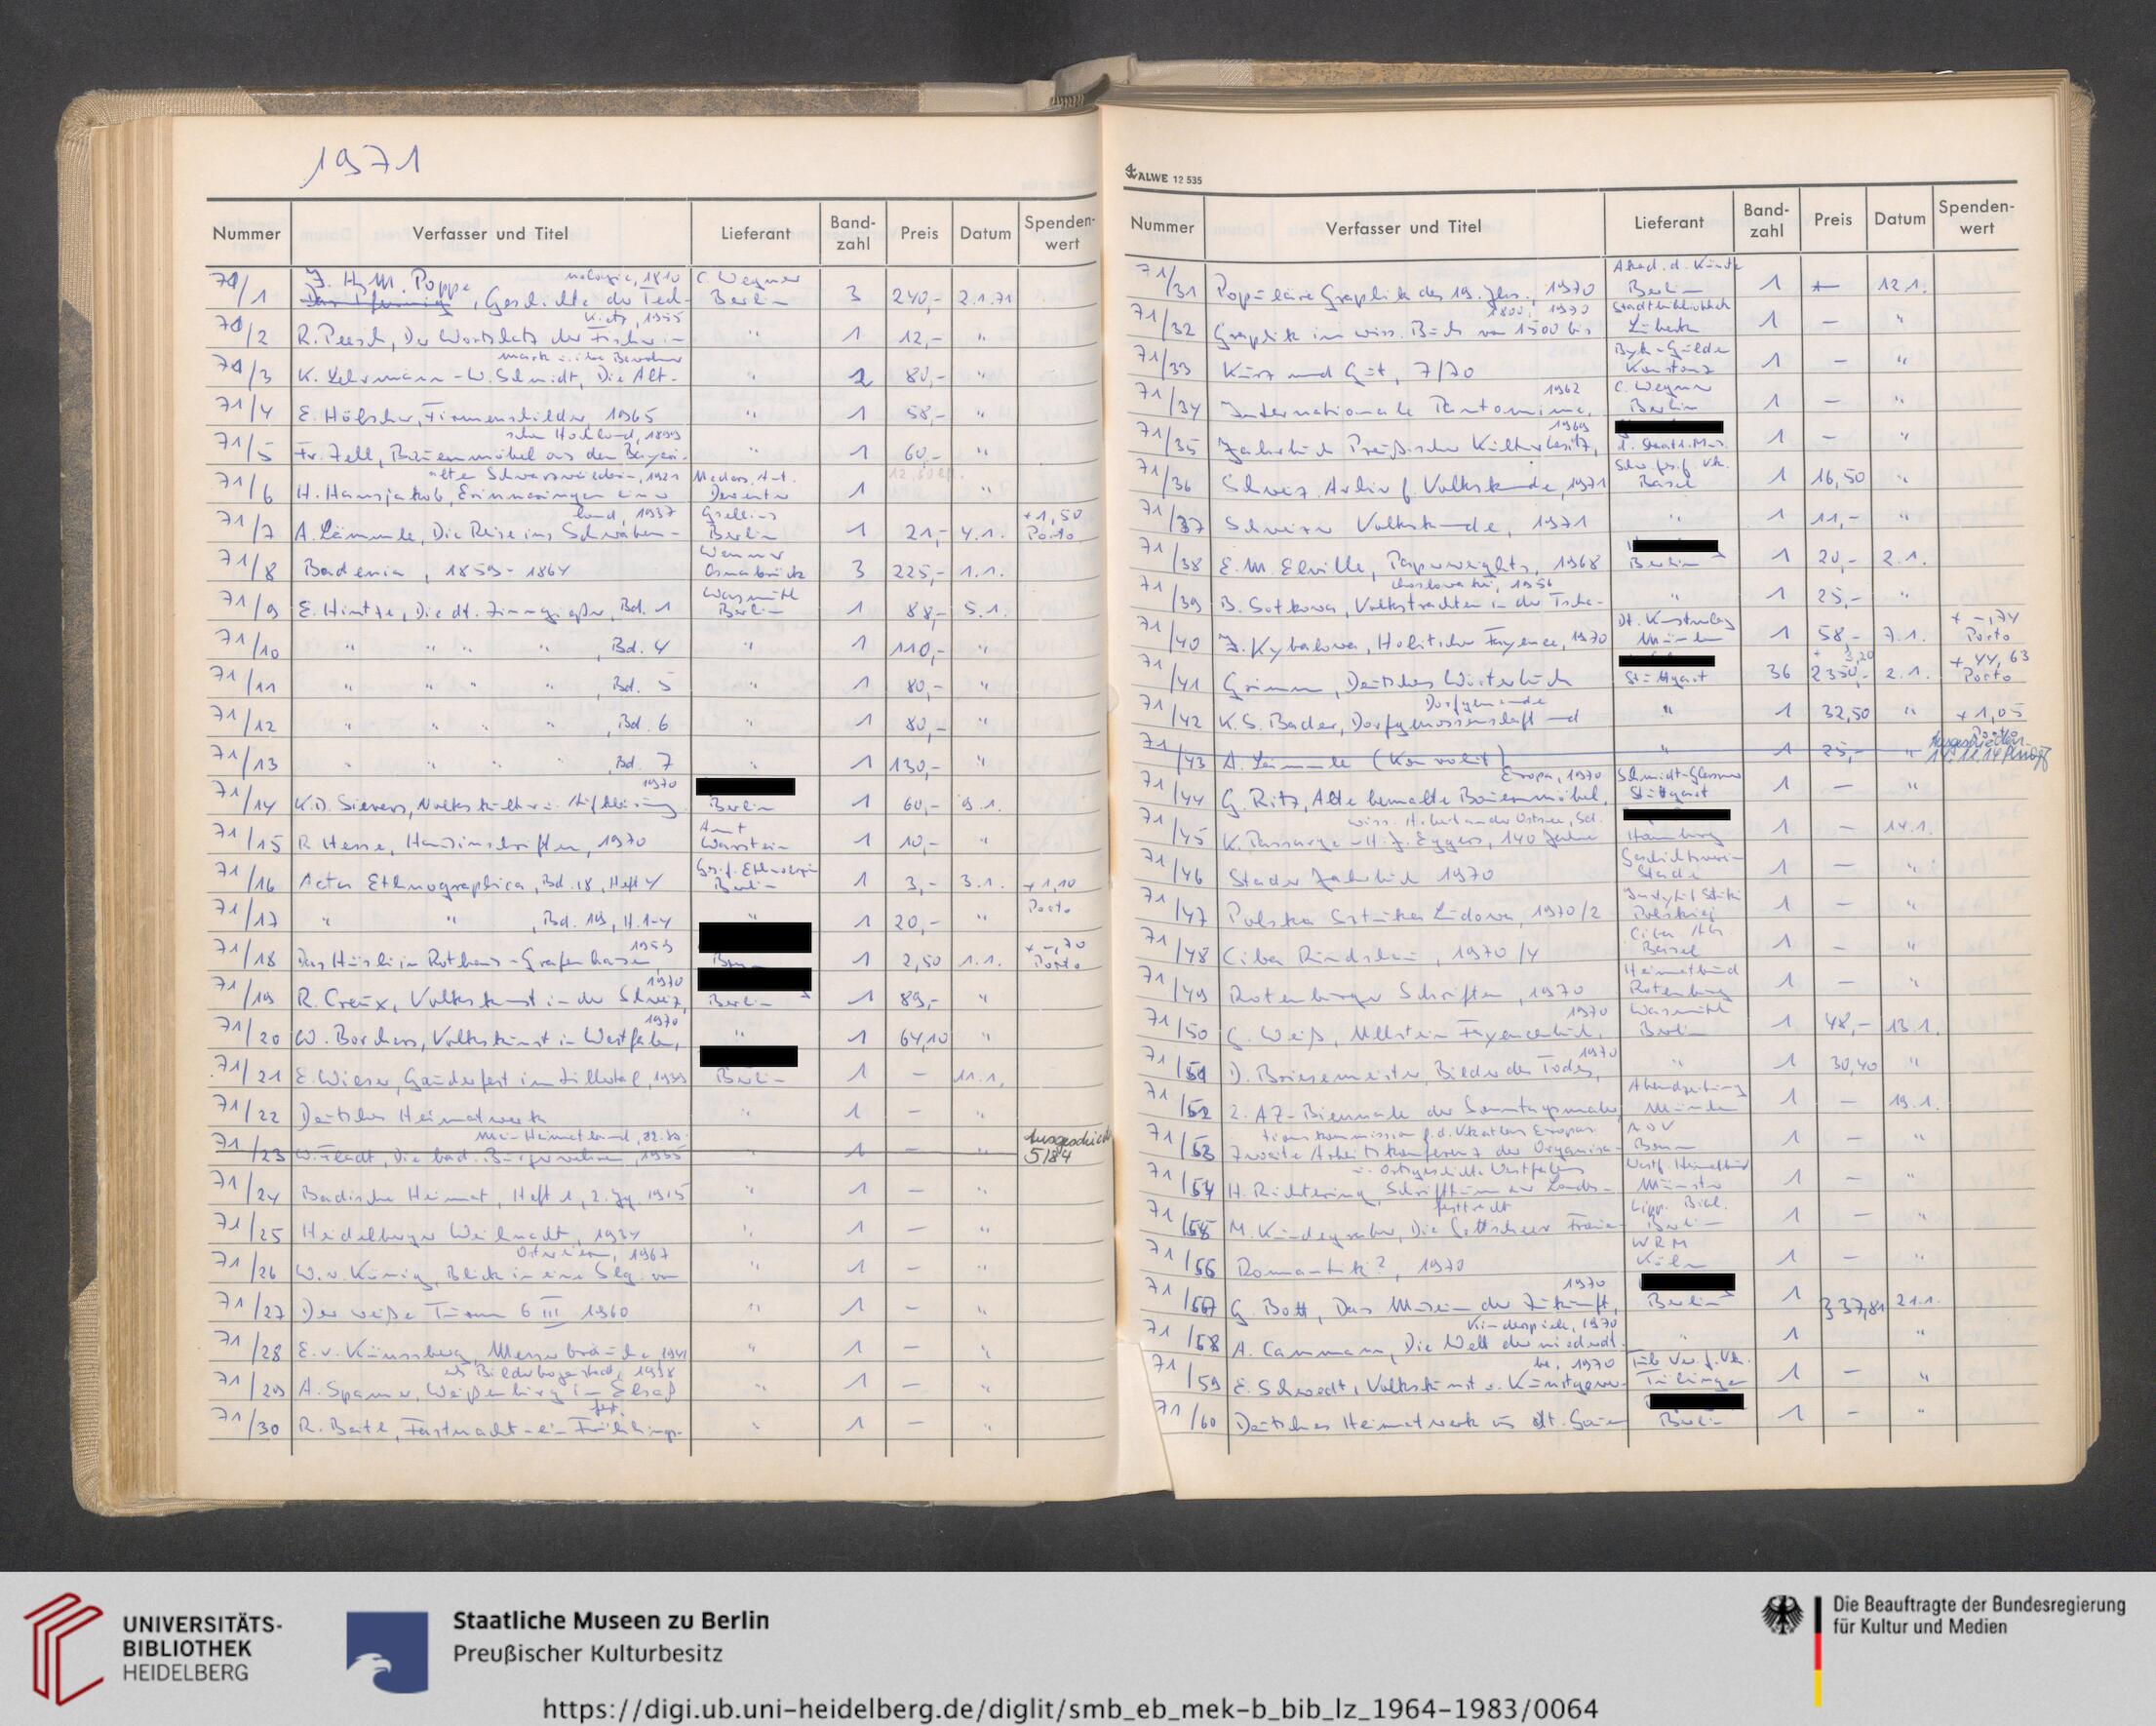 1971
Nummer Verfasser und Titel Lieferant Band-zahl Preis Datum Spenden-wert
71/1 J. H. M. Poppe, Geschichte der Technologie, 1810 C. Wegner Berlin 3 240,- 2.1.71
71/2 R. Peesch, Der Wortschatz der Fischer im Kietz, 1955 " 1 12,- "
71/3 K. Lehrmann - W. Schmidt, Die Altmark u. ihre Bewohner " 2 80,- "
71/4 E. Hölscher, Firmenschilder 1965 " 1 58,- "
71/5 Fr. Zell, Bauernmöbel aus dem Bayerischen Hochland, 1899 " 1 60,- "
71/6 H. Hansjakob, Erinnerungen einer alten Schwarzwälderin, 1921 Deventer 1 "
71/7 A. Lämmle, Die Reise ins Schwabenland, 1937 Gsellius Berlin 1 21,- 4.1. +1,50 Porto
71/8 Badenia, 1859-1864 Wenner Osnabrück 3 225,- 1.1.
71/9 E. Hintze, Die dt. Zinngießer, Bd. 1 Wasmuth Berlin 1 88,- 5.1.
71/10 " " " " , Bd. 4 " 1 110,- "
71/11 " " " " , Bd. 5 " 1 80,- "
71/12 " " " " , Bd. 6 " 1 80,- "
71/13 " " " " , Bd. 7 " 1 130,- "
71/14 K.D. Sievers, Volkskultur u. Aufklärung 1970 Berlin 1 60,- 9.1.
71/15 R. Hesse, Hausinschriften, 1970 Amt Warstein 1 10,- "
71/16 Acta Ethnographica, Bd. 18, Heft 4 Ges. f. Ethnologie Berlin 1 3,- 3.1. +1,10
71/17 " " , Bd. 19, H. 1-4 " 1 20,- " Porto
71/18 Das Häusli in Rothaus-Grafenhausen 1959 1 2,50 1.1. + -,70 Porto
71/19 R. Creux, Volkskunst in der Schweiz, 1970 Berlin 1 89,- "
71/20 W. Borchers, Volkskunst in Westfalen, 1970 " 1 64,10 "
71/21 E. Wieser, Gauderfest im Zillertal, 1939 Berlin 1 - 11.1.
71/22 Deutsches Heimatwerk " 1 - "
71/23 W. Fladt, Die bad. Bürgerwehren, 1935 Mein Heimatland, 22. " 1 - " Ausgeschieden 5/84
71/24 Badische Heimat, Heft 1, 2. Jg. 1915 " 1 - "
71/25 Heidelberger Weihnacht, 1934 " 1 - "
71/26 W. v. König, Blick in eine Slg. von Ostereiern, 1967 " 1 - "
71/27 Der weiße Turm 6 III 1960 " 1 - "
71/28 E. v. Künssberg, Messerbräuche, 1941 " 1 - "
71/29 A. Spamer, Weißenburg im Elsaß als Bilderbogenstadt, 1938 " 1 - "
71/30 R. Beitl, Fastnacht - ein Frühlingsfest. " 1 - "
ALWE 12 535
Nummer Verfasser und Titel Lieferant Band-zahl Preis Datum Spenden-wert
71/31 Populäre Graphik des 19. Jhs., 1970 Akad. d. Künste Berlin 1 - 12.1.
71/32 Graphik im wiss. Buch von 1500 bis 1800, 1970 Stadtbibliothek Lübeck 1 - "
71/33 Kurz und Gut, 7/70 Byk-Gulden Konstanz 1 - "
71/34 Internationale Pantomime, 1962 C. Wegner Berlin 1 - "
71/35 Jahrbuch Preußischer Kulturbesitz, 1969 d. Staatl. Mus. 1 - "
71/36 Schweiz. Archiv f. Volkskunde, 1971 Schw. Ges. f. Vk. Basel 1 16,50 "
71/37 Schweizer Volkskunde, 1971 " 1 11,- "
71/38 E. M. Elville, Paperweights, 1968 Berlin 1 20,- 2.1.
71/39 B. Sotkova, Volkstrachten in der Tschechoslowakei, 1956 " 1 25,- "
71/40 J. Kybalova, Holitscher Fayence, 1970 Dt. Kunstverlag München 1 58,- 7.1. + -,74 Porto
71/41 Grimm, Deutsches Wörterbuch Stuttgart 36 2350,- + 3,20 2.1. + 44,63 Porto
71/42 K.S. Bader, Dorfgenossenschaft und Dorfgemeinde " 1 32,50 " +1,05 Porto
71/43 A. Lämmle (Konvolut) " 1 25,- " Ausgeschieden
71/44 G. Ritz, Alte bemalte Bauernmöbel, Europa, 1970 Stuttgart 1 - "
71/45 K. Passarge - H. J. Eggers, 140 Jahre wiss. Arbeit an der Ostsee, Hamburg 1 - 14.1.
71/46 Stader Jahrbuch 1970 Geschichtsverein Stade 1 - "
71/47 Polska Sztuka Ludowa, 1970/2 Instytut Sztuki Polskiej 1 - "
71/48 Ciba Rundschau, 1970/4 Ciba AG. Basel 1 - "
71/49 Rotenburger Schriften, 1970 Heimatbund Rotenburg 1 - "
71/50 G. Weiß, Ullstein Fayencenbuch, 1970 Wasmuth Berlin 1 48,- 13.1.
71/51 D. Briesemeister, Bilder des Todes, 1970 " 1 30,40 "
71/52 2. AZ-Biennale der Sonntagsmaler Abendzeitung München 1 - 19.1.
71/53 Zweite Arbeitskonferenz der Organisationskommission f. d. Vkatlas Europas Bonn 1 - "
71/54 H. Richtering, Schrifttum zur Landes- u. Ortsgeschichte Westfalens Westf. Heimatbund Münster 1 - "
71/55 M. Kundegraber, Die Gottscheer Frauenfesttracht Lipp. Bibl. Berlin 1 - "
71/56 Romantik?, 1970 WRM Köln 1 - "
71/57 G. Bott, Das Museum der Zukunft, 1970 Berlin 1 } 37,81 21.1.
71/58 A. Cammann, Die Welt der niederdt. Kinderspiele, 1970 " 1 "
71/59 E. Schwedt, Volkskunst u. Kunstgewerbe, 1970 Tüb. Ver. f. Vk. Tübingen 1 - "
71/60 Deutsches Heimatwerk Berlin 1 - "
UNIVERSITÄTS-
BIBLIOTHEK
HEIDELBERG
Staatliche Museen zu Berlin
Preußischer Kulturbesitz
Die Beauftragte der Bundesregierung
für Kultur und Medien
https://digi.ub.uni-heidelberg.de/diglit/smb_eb_mek-b_bib_lz_1964-1983/0064